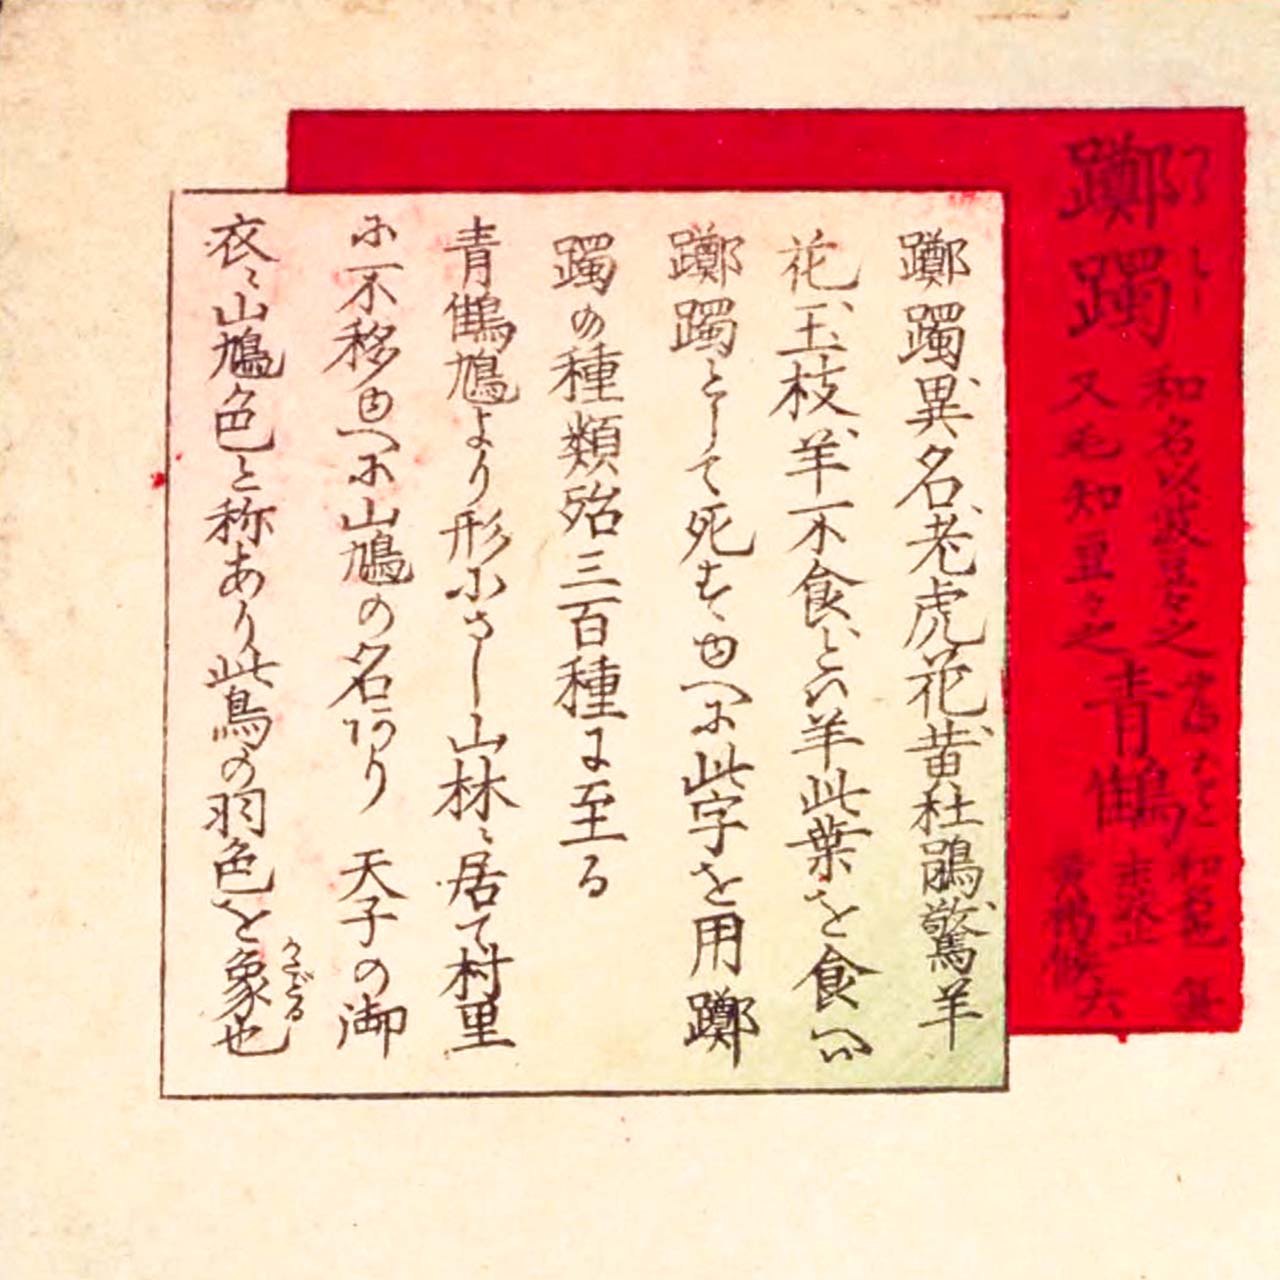 躑躅
和名以波豆々之
又毛知豆々之
青鶴
躑躅異名老虎花黄杜鵑驚羊
花玉枝羊不食といふ羊此葉を食へバ
躑躅として死すゆへに此字を用躑
躅の種類殆三百種に至る
青鶴鳩より形小さし山林ニ居て村里
に不移ゆへに山鳩の名あり 天子の御
衣ニ山鳩色と称あり此鳥の羽色を象也